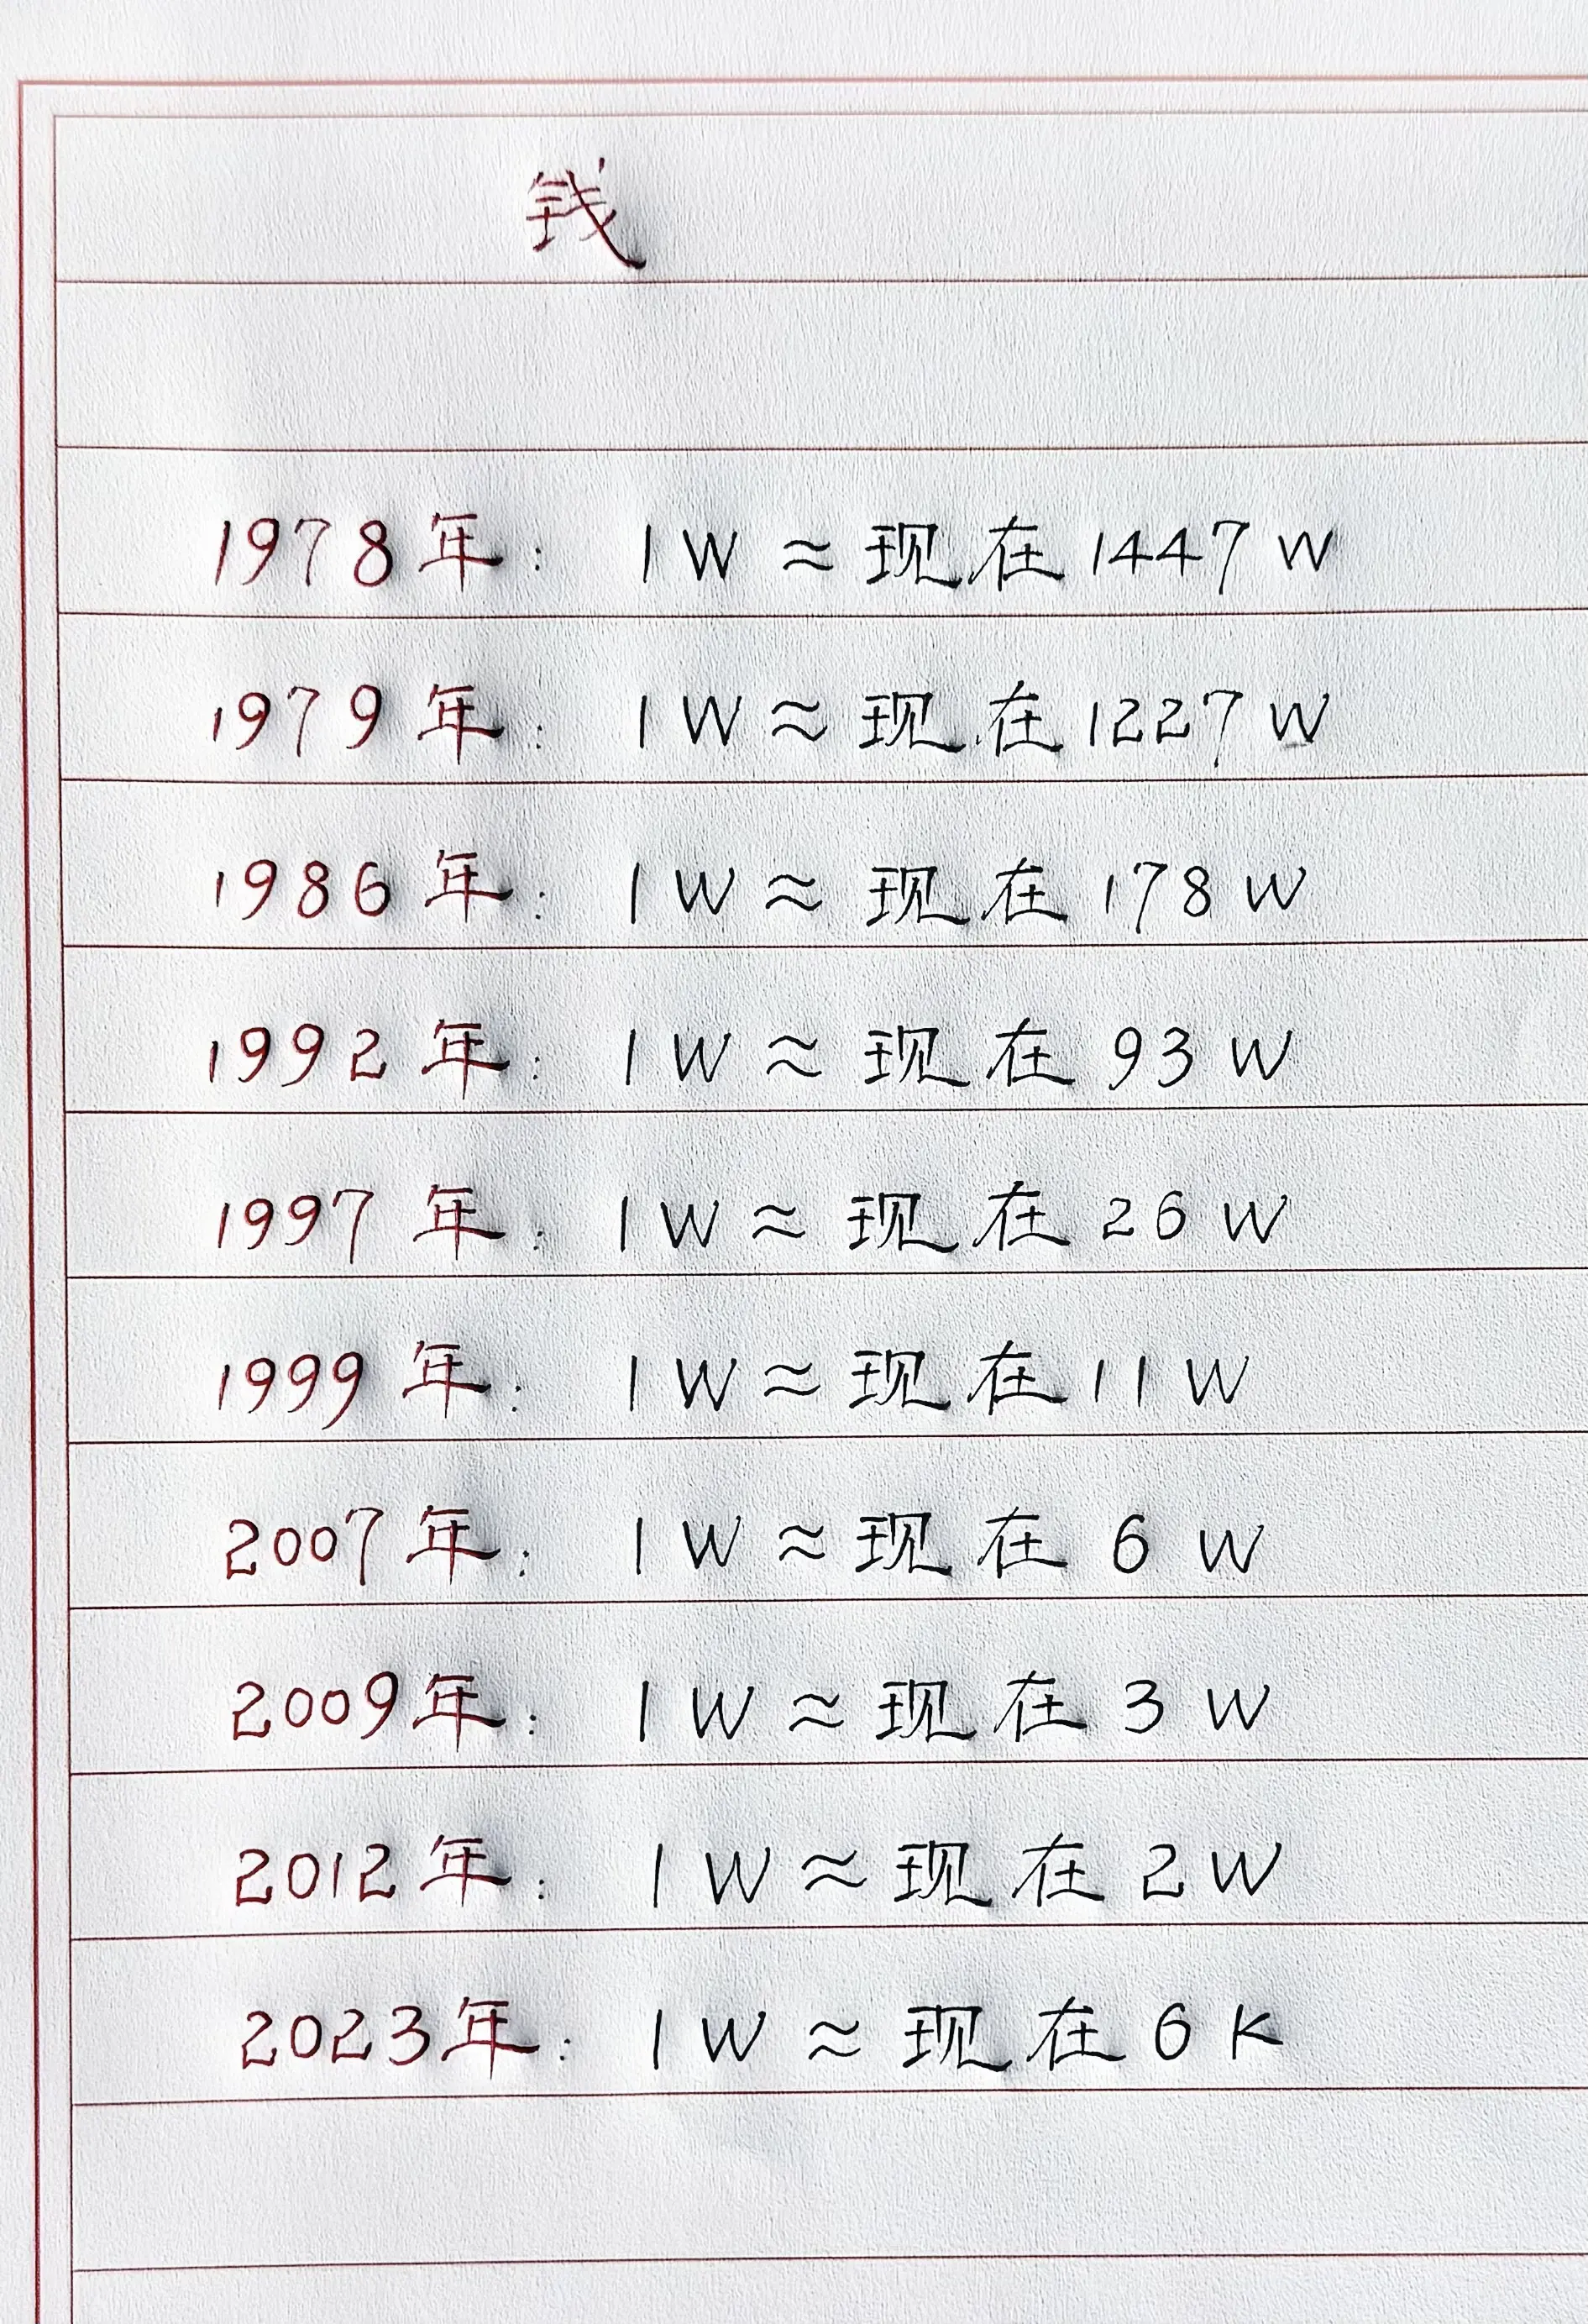 钱
1978年: 1W≈现在1447W
1979年: 1W≈现在1227W
1986年: 1W≈现在178W
1992年: 1W≈现在93W
1997年: 1W≈现在26W
1999年: 1W≈现在11W
2007年: 1W≈现在6W
2009年: 1W≈现在3W
2012年: 1W≈现在2W
2023年: 1W≈现在6K